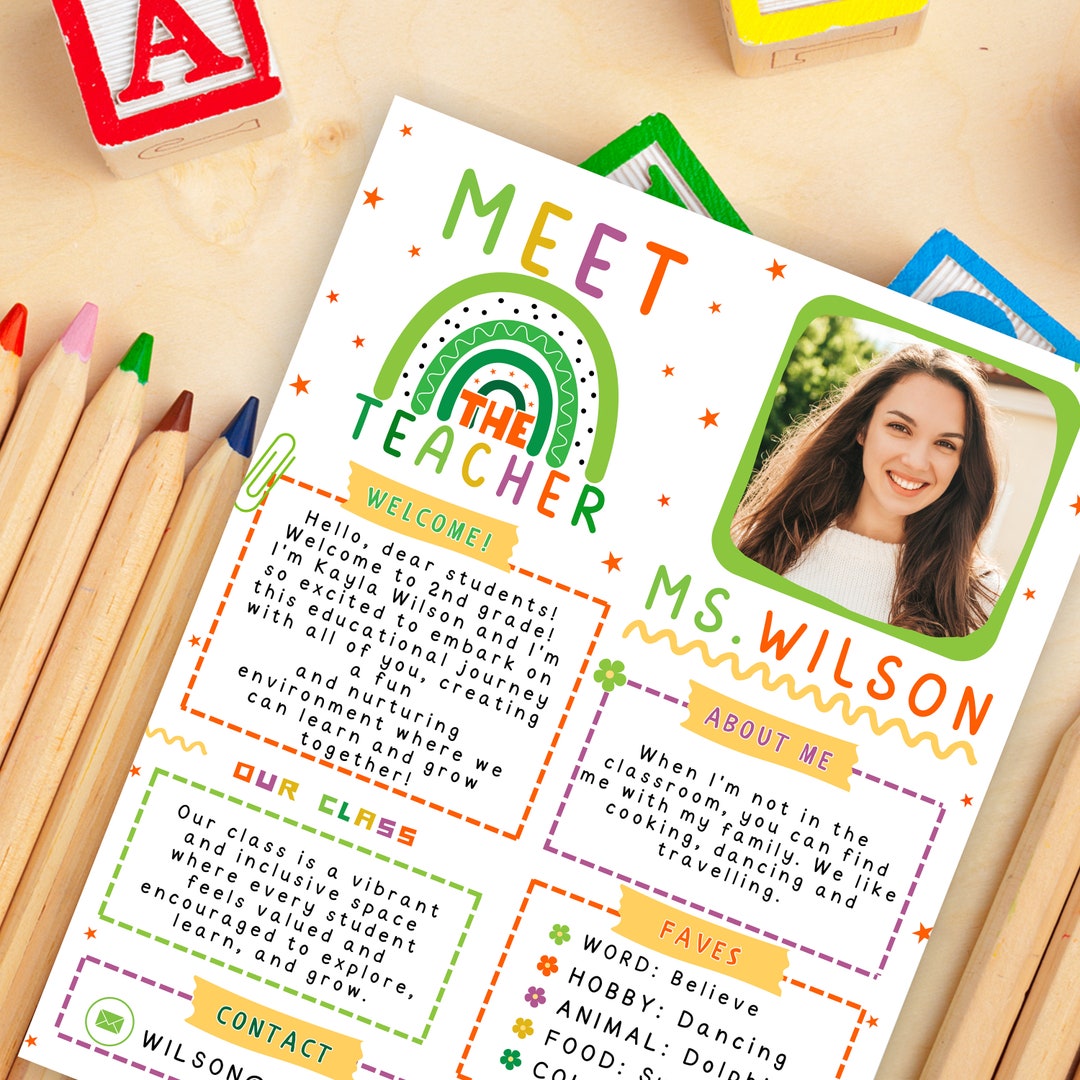 A
MEET
THE
TEACHER
WELCOME!
Hello, dear students!
Welcome to 2nd grade!
I'm Kayla Wilson and I'm
so excited to embark on
this educational journey
with all of you, creating
a fun
and nurturing
environment where we
can learn and grow
together!
MS. WILSON
ABOUT ME
When I'm not in the
classroom, you can find
me with my family. We like
cooking, dancing and
travelling.
OUR CLASS
Our class is a vibrant
and inclusive space
where every student
feels valued and
encouraged to explore,
learn, and grow.
FAVES
WORD: Believe
HOBBY: Dancing
ANIMAL:
FOOD:
CONTACT
WILSON@